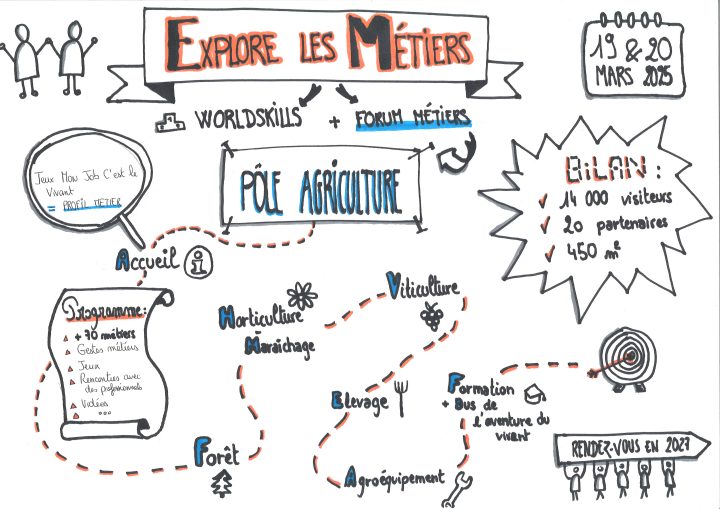 EXPLORE LES MÉTIERS
19 & 20
MARS 2025
WORLDSKILLS + FORUM MÉTIERS
Jeux Mon Job C'est le
Vivant
= PROFIL METIER
PÔLE AGRICULTURE
BILAN :
14 000 visiteurs
20 partenaires
450 m²
Accueil
Programme:
+ 70 métiers
Gestes métiers
Jeux
Rencontres avec
des professionnels
Vidéos
...
Horticulture
Maraîchage
Viticulture
Forêt
Elevage
Agroéquipement
Formation
+ Bus de
l'aventure du
vivant
RENDEZ-VOUS EN 2027